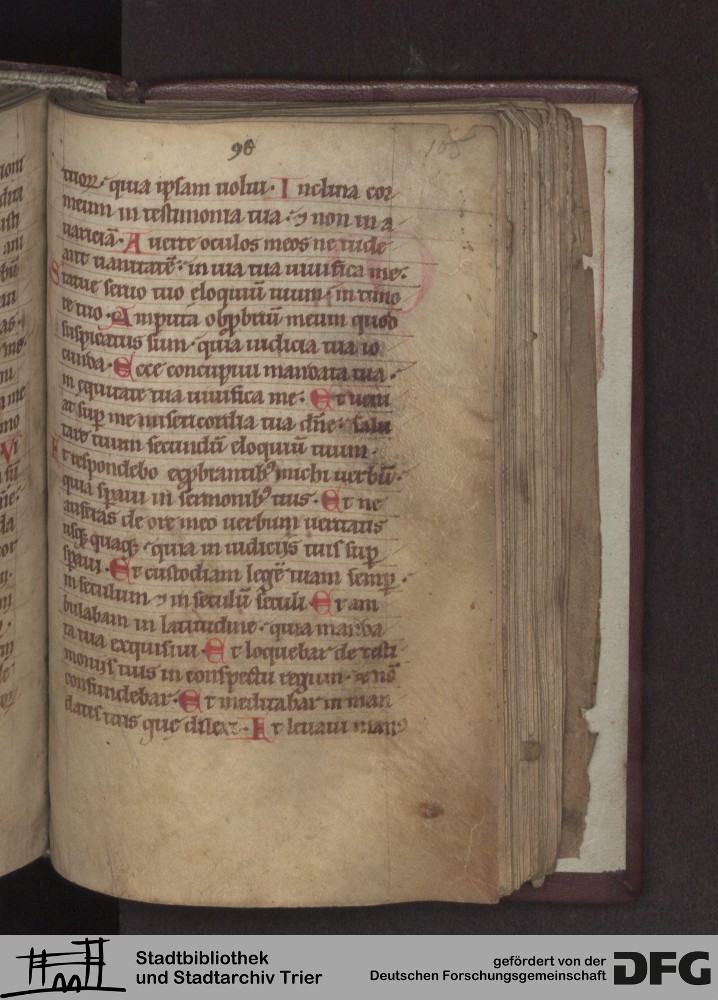 98
105
tuoꝝ. quia ipsam uolui. Inclina cor
meum in testimonia tua. ⁊ non in a
uaricia͞. Auerte oculos meos ne uide
ant uanitate͞. in uia tua uiuifica me.
Statue seruo tuo eloquiu͞ tuum. in timo
re tuo. Amputa obp̱briu͞ meum quod
suspicatus sum. quia iudicia tua io
cunda. Ecce concupiui mandata tua.
in ęquitate tua uiuifica me. Et ueni
at suꝑ me misericordia tua dn͞e. salu
tare tuum secundu͞ eloquiu͞ tuum.
Et respondebo exp̱brantibꝰ michi uerbu͞.
quia sꝑaui in sermonibꝰ tuis. Et ne
auferas de ore meo uerbum ueritatis
usqꝫ quaqꝫ. quia in iudicijs tuis suꝑ
sꝑaui. Et custodiam lege͞ tuam semꝑ.
in seculum ⁊ in seculu͞ seculi. Et am
bulabam in latitudine. quia manda
ta tua exquisiui. Et loquebar de testi
monijs tuis in conspectu regum. ⁊ no͞
confundebar. Et meditabar in man
datis tuis que dilexi. Et leuaui manꝰ
Stadtbibliothek
und Stadtarchiv Trier
gefördert von der
Deutschen Forschungsgemeinschaft
DFG